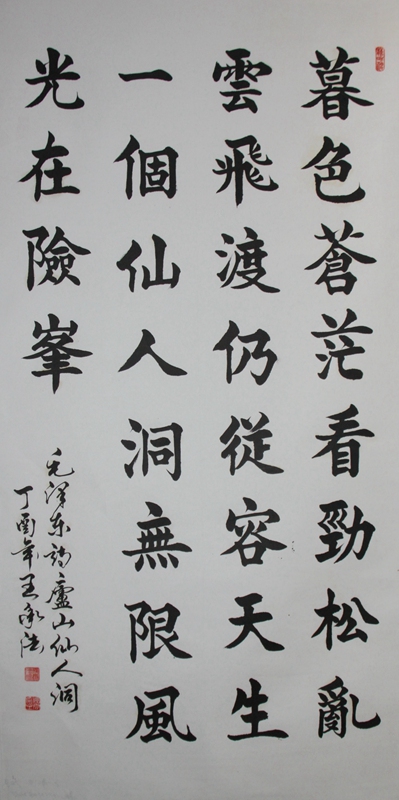 暮色蒼茫看勁松亂
雲飛渡仍從容天生
一個仙人洞無限風
光在險峯
毛澤东詩廬山仙人洞
丁酉年王承法